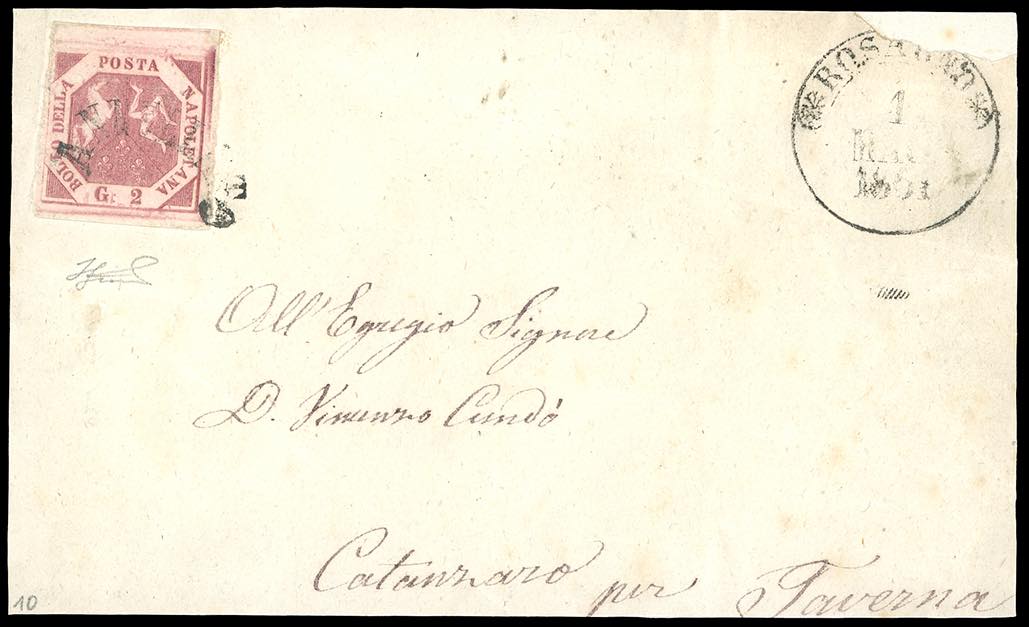 POSTA
BOLLO DELLA
NAPOLETANA
G. 2
1
All' Egregio Signore
D. Vincenzo Cundò
Catanzaro per Taverna
10